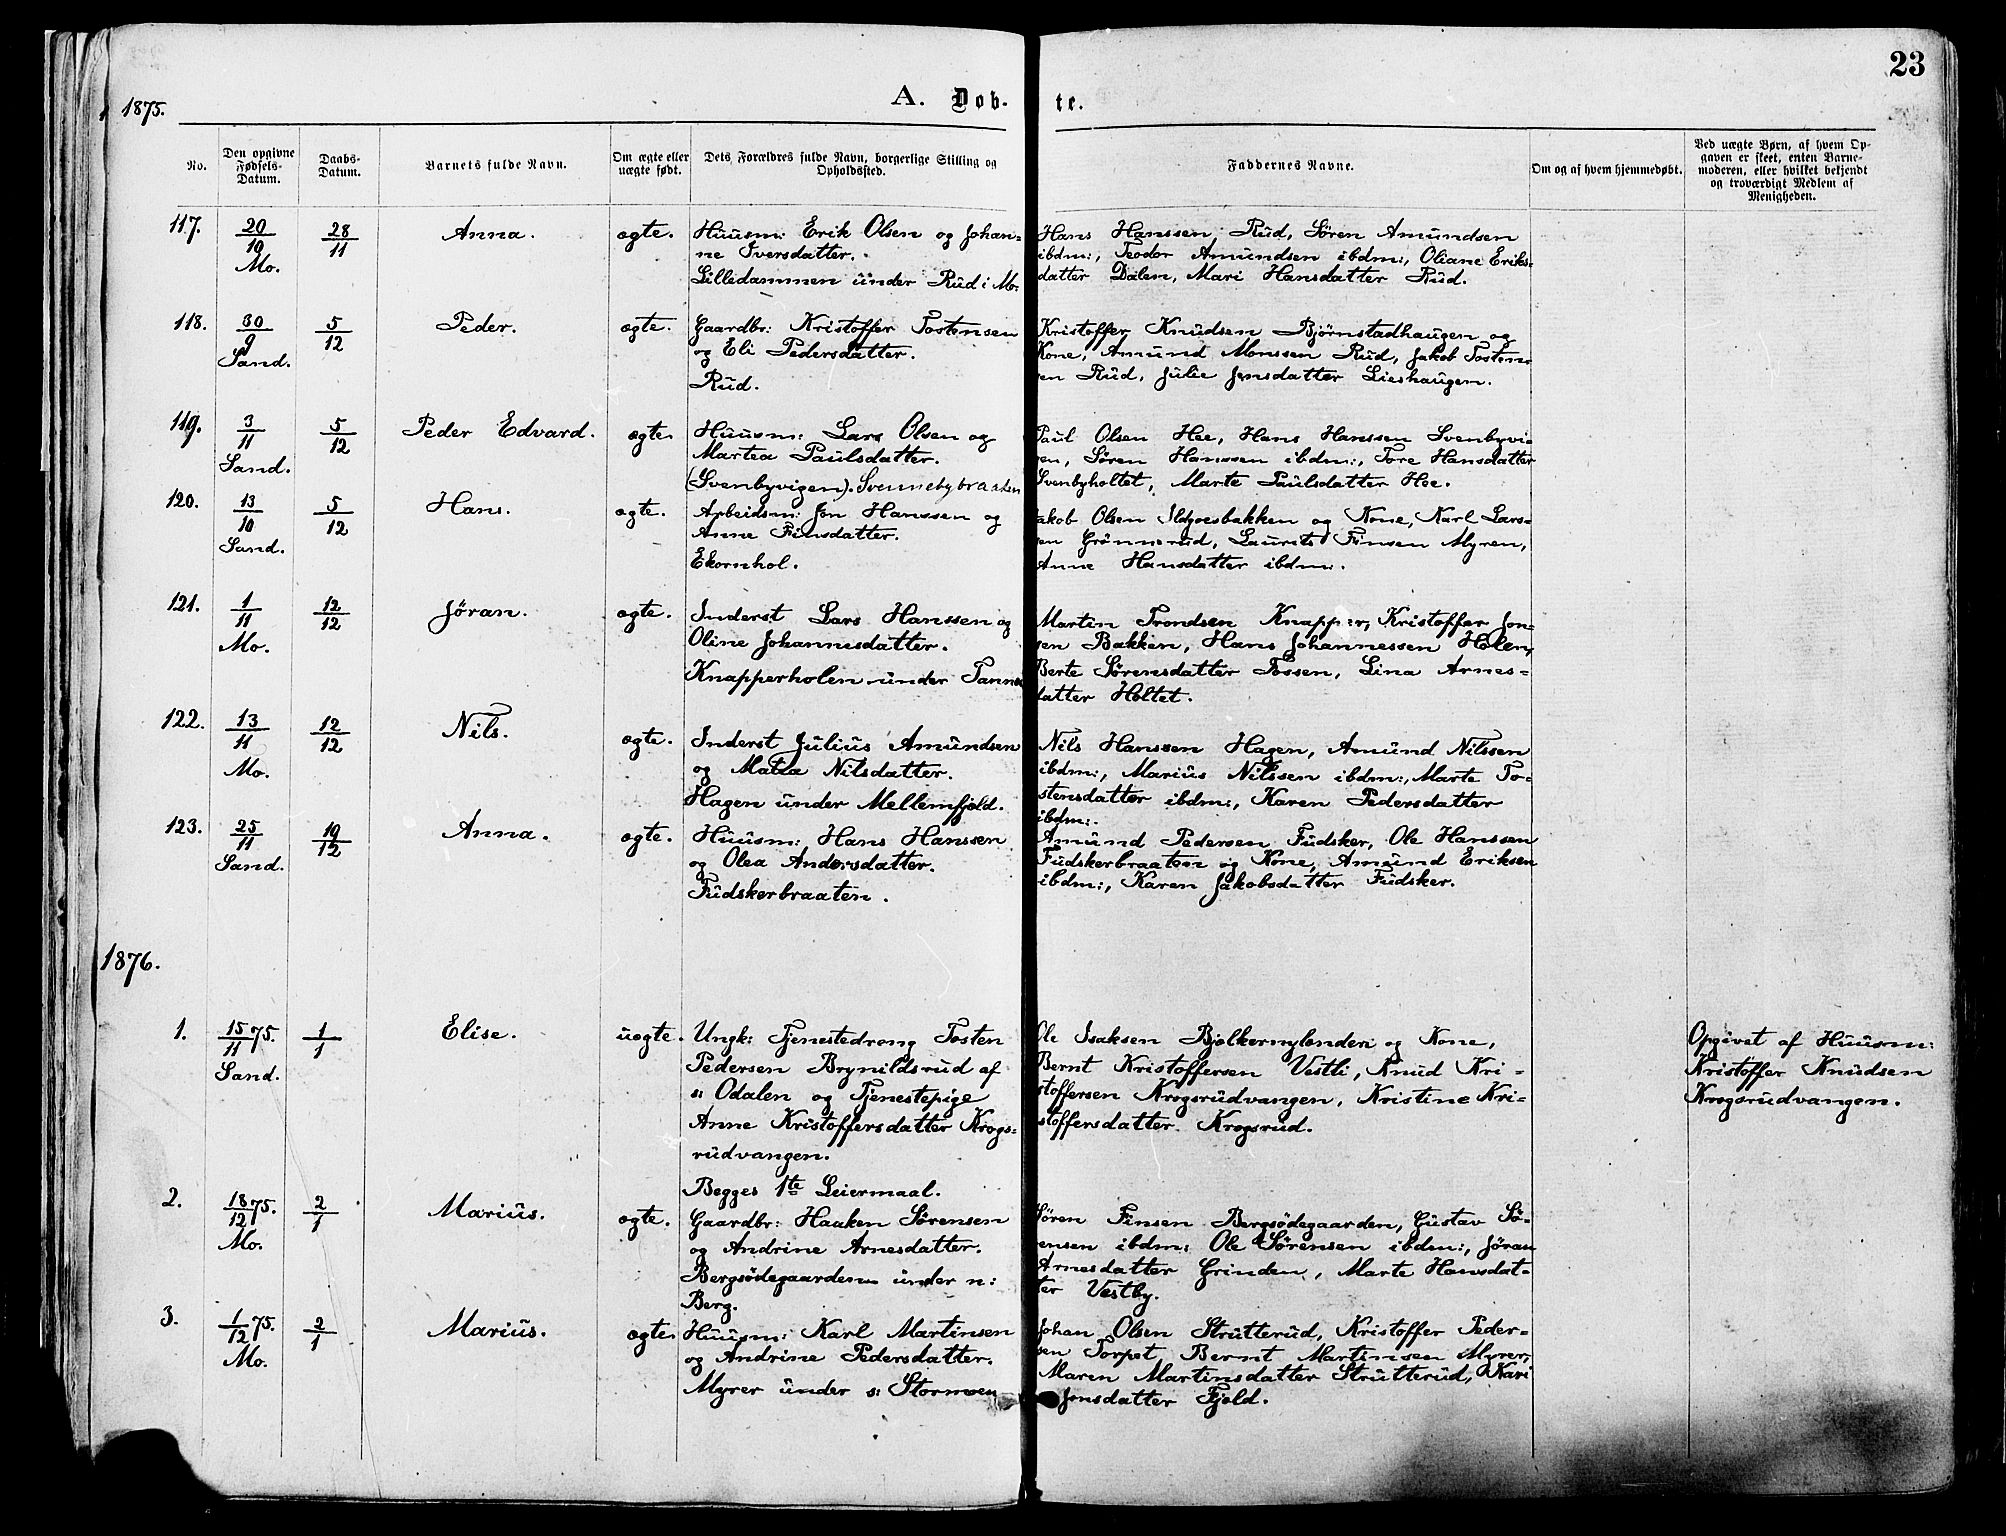 23
1875.
A. Döb-
te.
No.
Den opgivne Fødsels-Datum.
Daabs-Datum.
Barnets fulde Navn.
Om ægte eller uægte født.
Dets Forældres fulde Navn, borgerlige Stilling og Opholdssted.
Faddernes Navne.
Om og af hvem hjemmedøbt.
Ved uægte Børn, af hvem Op-
gaven er skeet, enten Barne-
moderen, eller hvilket bekjendt
og troværdigt Medlem af
Menigheden.
117.
20/10
Mo.
28/11
Anna.
ægte.
Huusm: Erik Olsen og Johan-
ne Iversdatter.
Lilledammen under Rud i Mo:
Hans Hanssen Rud, Sören Amundsen
ibdm:, Teodor Amundsen ibdm:, Oliane Eriks-
datter Dalen, Mari Hansdatter Rud.
118.
30/9
Sand.
5/12
Peder.
ægte.
Gaardbr: Kristoffer Tostensen
og Eli Pedersdatter.
Rud.
Kristoffer Knudsen Bjørnstadhaugen og
Kone, Amund Monssen Rud, Jakob Tosten-
sen Rud, Julie Jensdatter Lieshaugen.
119.
3/11
Sand.
5/12
Peder Edvard.
ægte.
Huusm: Lars Olsen og
Martea Paulsdatter.
(Svenbyvigen). Svennebybraaten
Paul Olsen Hee, Hans Hanssen Svenbyvi-
gen, Sören Hanssen ibdm:, Tore Hansdatter
Svenbyholtet, Marte Paulsdatter Hee.
120.
13/10
Sand.
5/12
Hans.
ægte.
Arbeidsm: Jon Hanssen og
Anne Finsdatter.
Ekornhol.
Jakob Olsen Ildjoesbakken og Kone, Karl Lars-
sen Grönnerud, Laurits Finsen Myren,
Anne Hansdatter ibdm:.
121.
1/11
Mo.
12/12
Jöran.
ægte.
Inderst Lars Hanssen og
Oline Johannesdatter.
Knapperholen under Tannes
Martin Trondsen Knapper, Kristoffer Jon-
sen Bakken, Hans Johannessen Holen,
Berte Sörensdatter Fossen, Lina Arnes-
datter Holtet.
122.
13/11
Mo.
12/12
Nils.
ægte.
Inderst Julius Amundsen
og Matea Nilsdatter.
Hagen under Mellemfjeld.
Nils Hanssen Hagen, Amund Nilssen
ibdm:, Marius Nilssen ibdm:, Marte To-
stensdatter ibdm:, Karen Pedersdatter
ibdm:.
123.
25/11
Sand.
19/12
Anna.
ægte.
Huusm: Hans Hanssen
og Olea Andersdatter.
Fudskerbraaten.
Amund Pedersen Fudsker, Ole Hanssen
Fudskerbraaten og Kone, Amund Eriksen
ibdm:, Karen Jakobsdatter Fudsker.
1876.
1.
15/11 75.
Sand.
1/1
Elise.
uægte.
Ungk: Tjenestedreng Tosten
Pedersen Brynildsrud af
s: Odalen og Tjenestepige
Anne Kristoffersdatter Krogs-
rudvangen.
Begges 1te Leiermaal.
Ole Isaksen Bjølkernylendet og Kone,
Bernt Kristoffersen Vestli, Knud Kri-
stoffersen Krogsrudvangen, Kristine Kri-
stoffersdatter Krogsrud.
Opgivet af Huusm:
Kristoffer Knudsen
Krogsrudvangen.
2.
18/12 75.
Mo.
2/1
Marius.
ægte.
Gaardbr: Haaken Sörensen
og Andrine Arnesdatter.
Bergsödegaarden under n:
Berg.
Sören Finsen Bergsödegaarden, Gustav Sö-
rensen ibdm: Ole Sörensen ibdm:, Jöran
Arnesdatter Grinden, Marte Hansdat-
ter Vestby.
3.
1/12 75.
Mo.
2/1
Marius.
ægte.
Huusm: Karl Martinsen
og Andrine Pedersdatter.
Myrer under s: Stormoen
Johan Olsen Strutterud, Kristoffer Peder-
sen Torpet Bernt Martinsen Myrer,
Maren Martinsdatter Strutterud, Kari
Jonsdatter Fjeld.